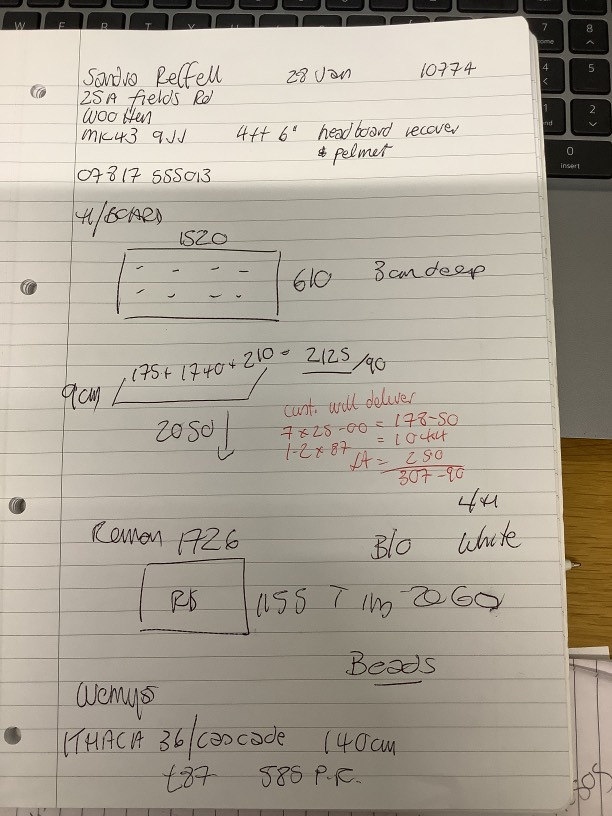 Sandra Reffell 28 Jan 10774
25A fields Rd
Wootten
MK43 9JJ 4ft 6" headboard recover
& pelmet
07817 555013
H/BOARD
1520
610 8cm deep
175 + 1740 + 210 = 2125 /90
9cm
2050
Cust. will deliver
7 x 25-00 = 178-50
1-2 x 87 = 1044
= 250
307-90
Roman 1726
B/O White
1155
Beads
Wemyss
ITHACA 36/cascade 140cm
£87 585 P.R.